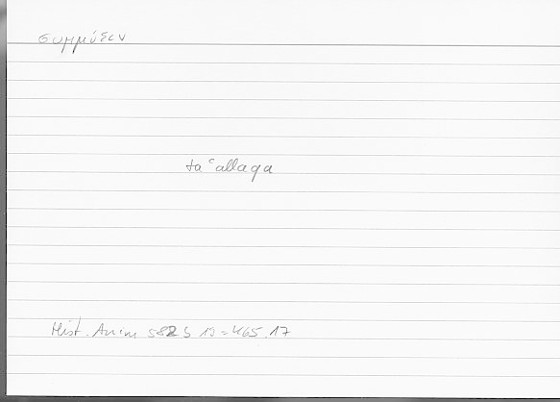 συμμύειν
taʿallaqa
Hist. Anim 582 b 19 = 465.17